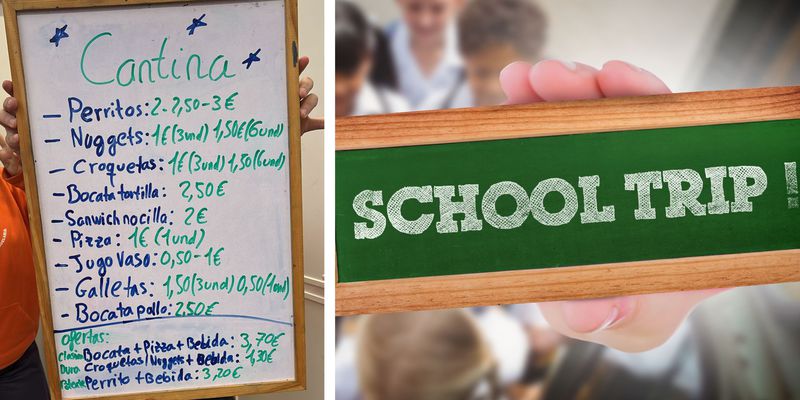 Cantina
- Perritos: 2-2,50-3€
- Nuggets: 1€(3und) 1,50€(6und)
- Croquetas: 1€(3und) 1,50(6und)
- Bocata tortilla: 2,50€
- Sanwich nocilla: 2€
- Pizza: 1€ (1und)
- Jugo Vaso: 0,50-1€
- Galletas: 1,50(3und) 0,50(1und)
- Bocata pollo: 2,50€
ofertas:
Bocata + Pizza + Bebida: 3,70€
Dura Croquetas/Nuggets + Bebida: 1,30€
Perrito + Bebida: 3,20€
SCHOOL TRIP!